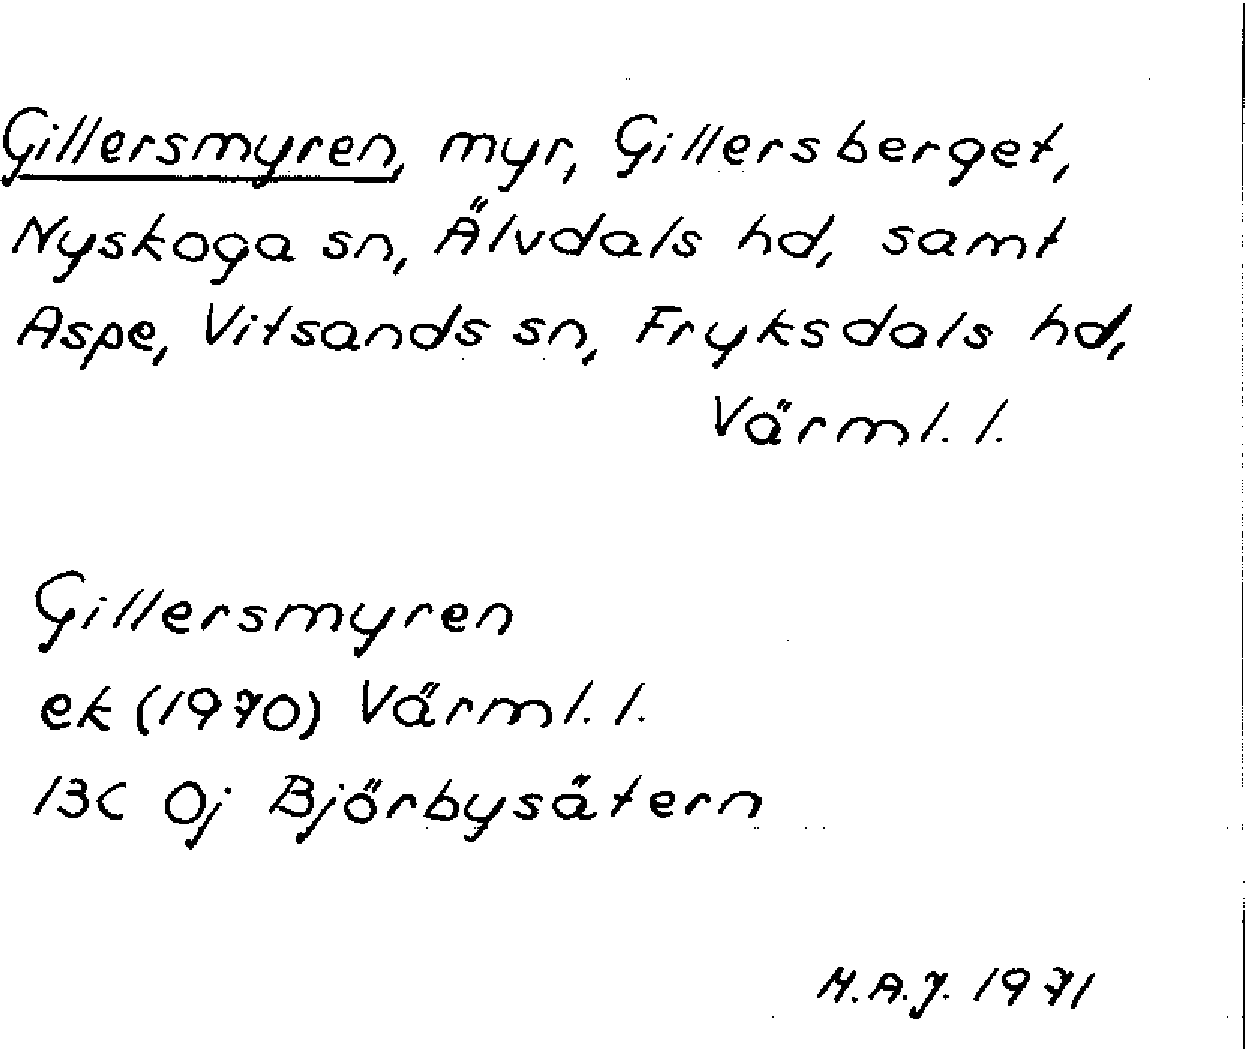 Gillersmyren, myr, Gillersberget,
Nyskoga sn, Älvdals hd, samt
Aspe, Vitsands sn, Fryksdals hd,
Värml. l.
Gillersmyren
ek (1970) Värml. l.
13C 0j Björbysätern
M.A.J. 1971